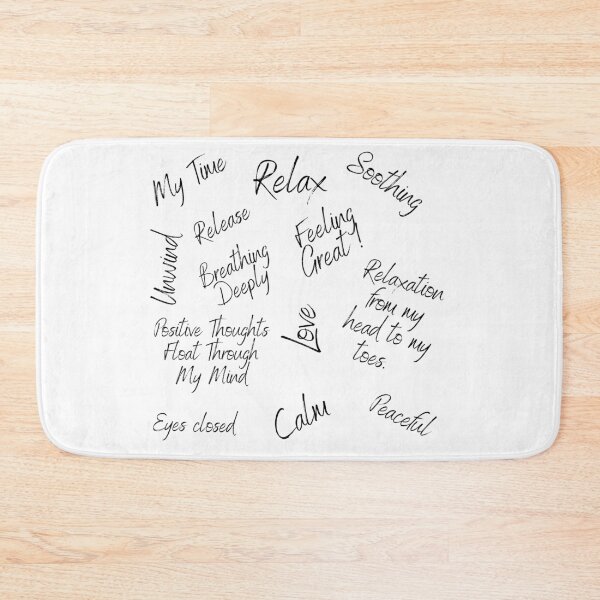 My Time
Relax
Soothing
Unwind
Release
Breathing
Deeply
Feeling
Great!
Relaxation
from my
head to my
toes.
Positive Thoughts
Float Through
My Mind
Love
Eyes closed
Calm
Peaceful